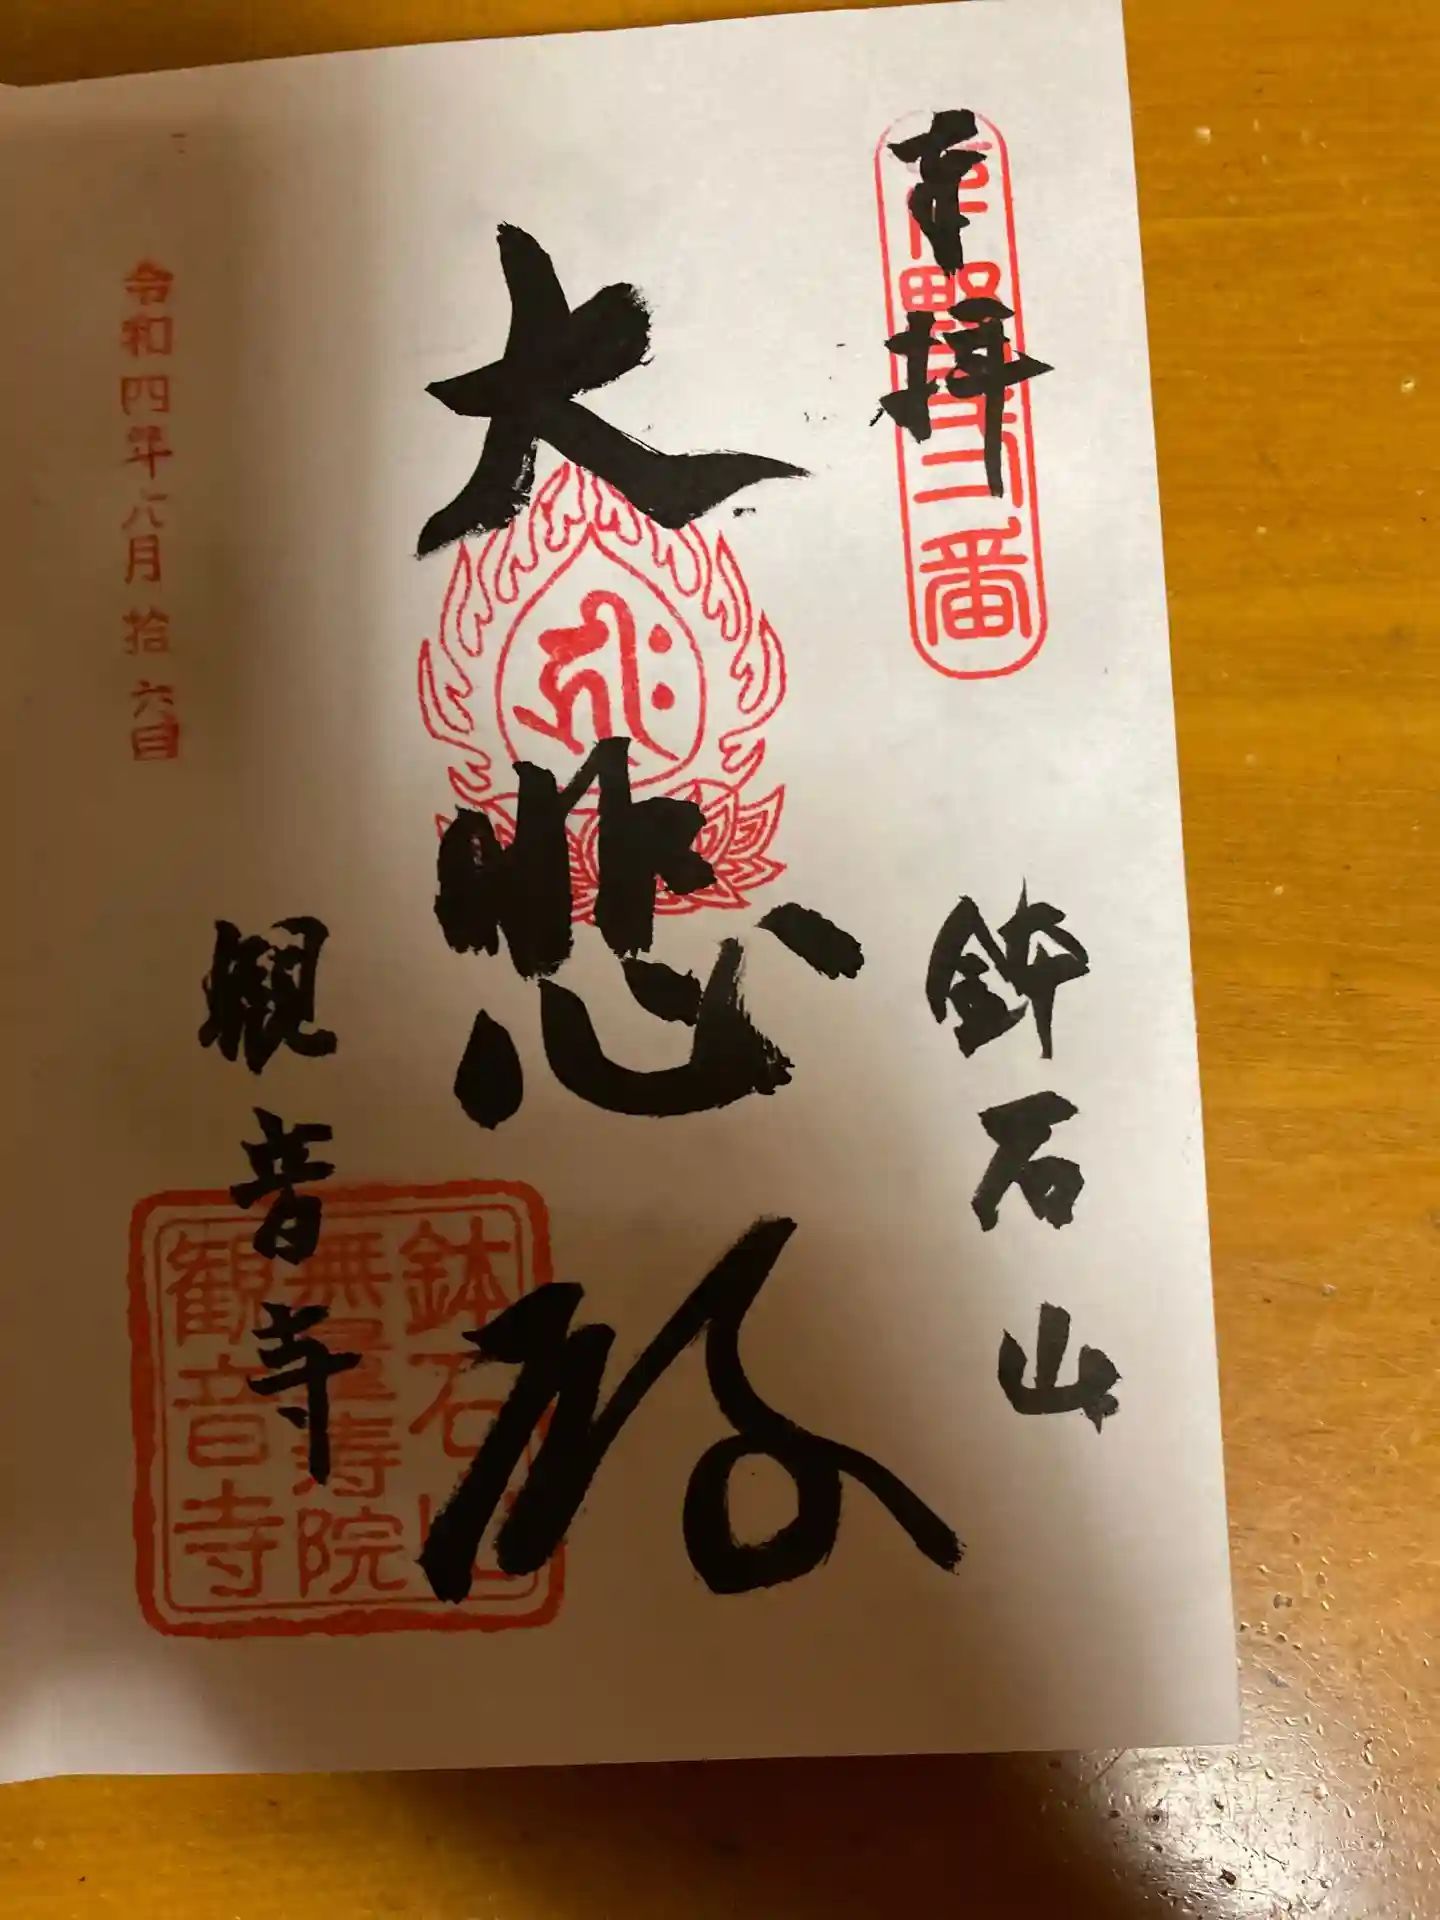 奉拝
下野弐番
鉢石山
大悲殿
観音寺
鉢石山
無量寿院
観音寺
令和四年六月拾六日